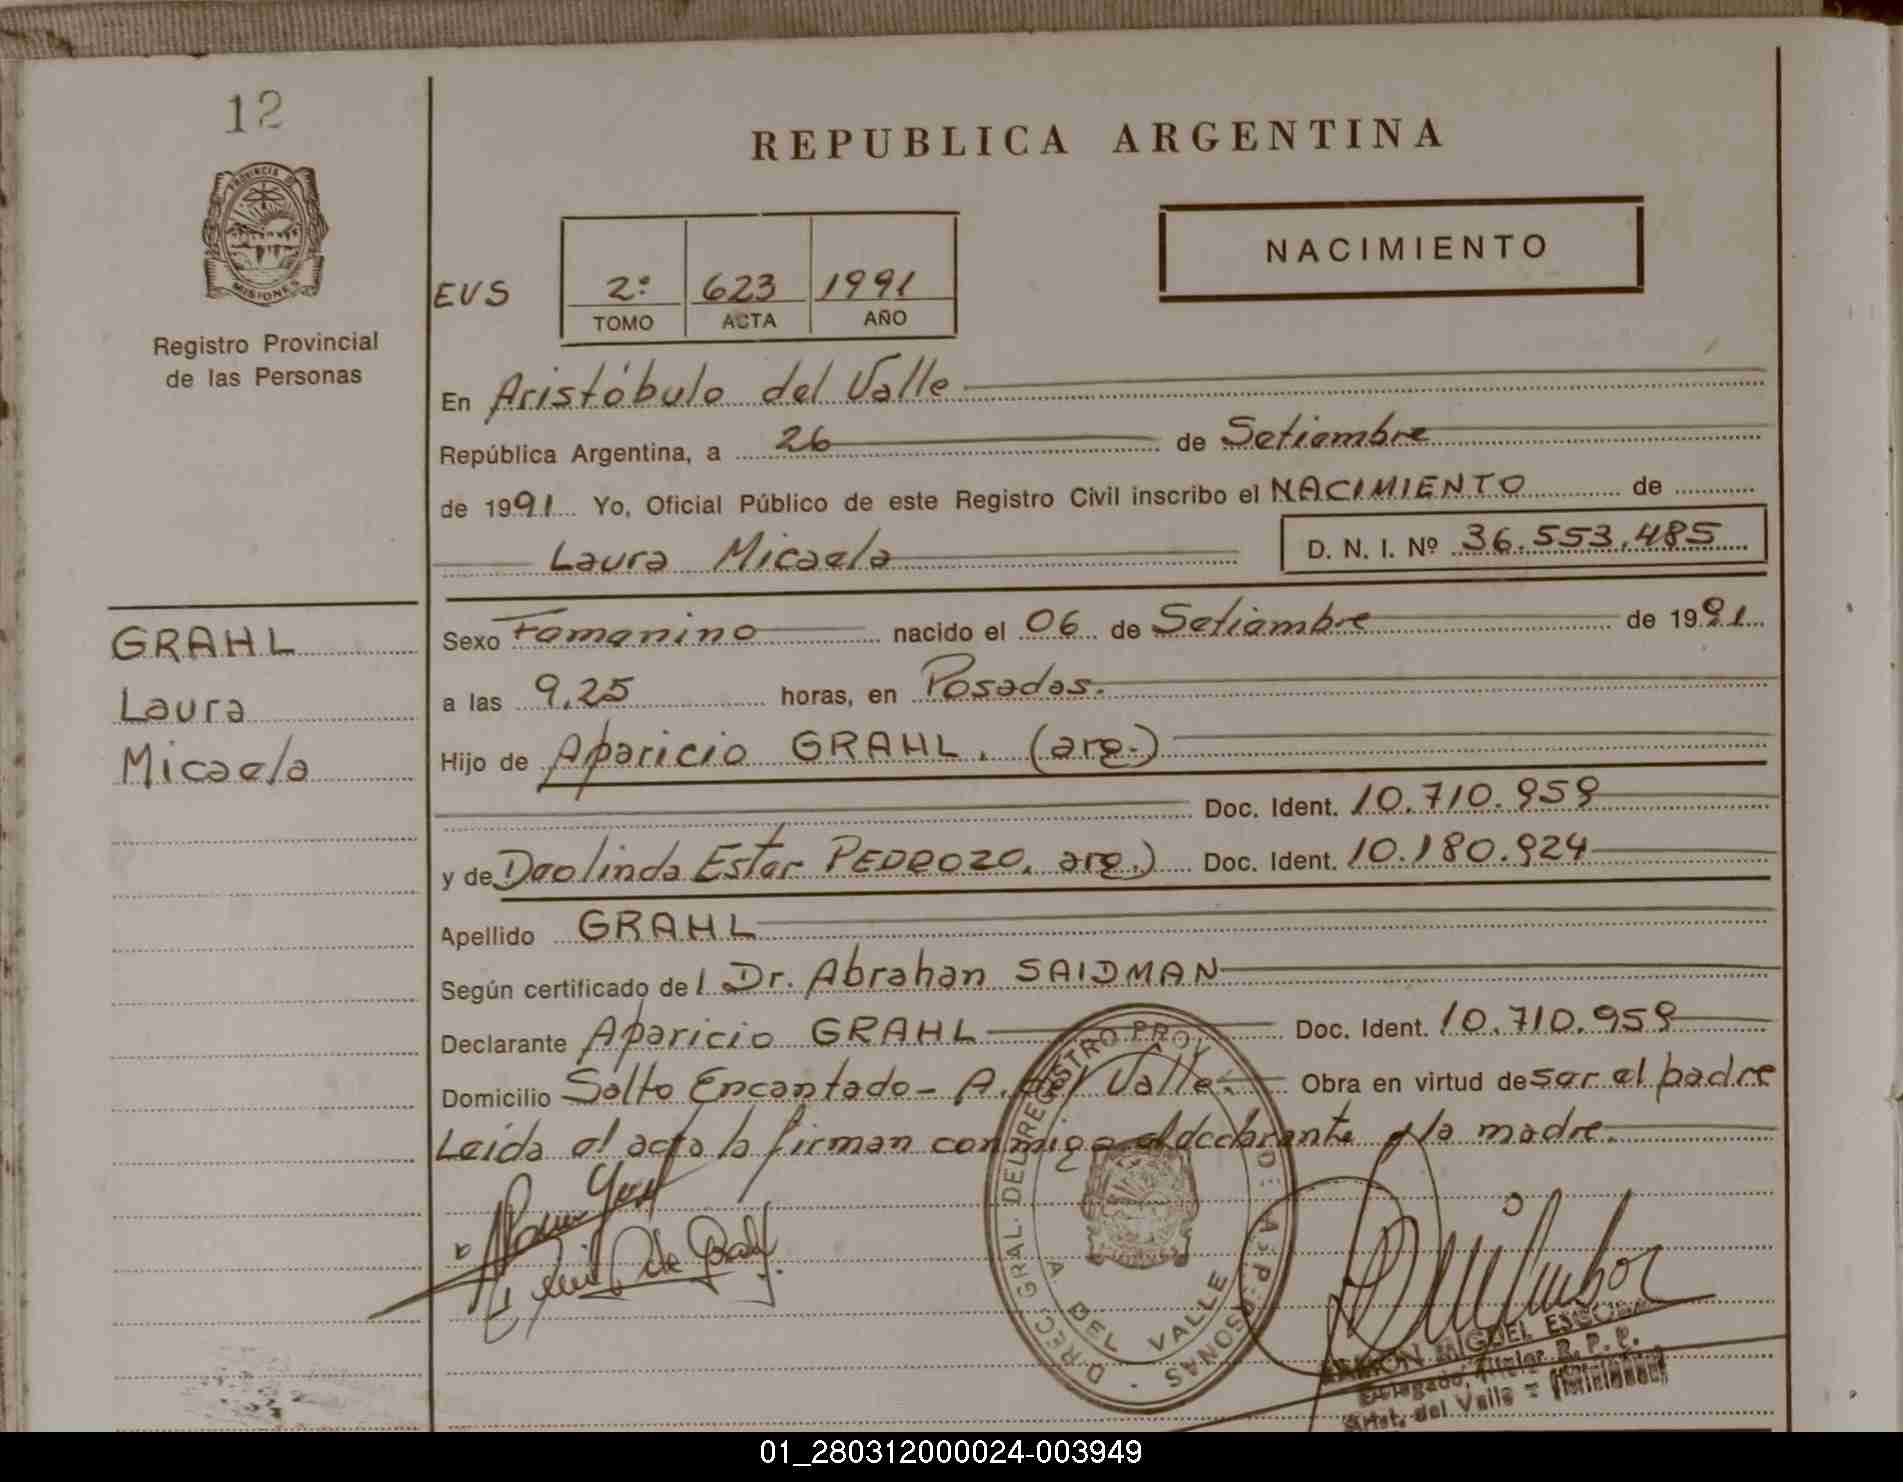 12
PROVINCIA DE
MISIONES
Registro Provincial
de las Personas
GRAHL
Laura
Micaela
REPUBLICA ARGENTINA
NACIMIENTO
EVS
2º 623 1991
TOMO ACTA AÑO
En Aristóbulo del Valle
República Argentina, a 26 de Setiembre
de 1991 Yo, Oficial Público de este Registro Civil inscribo el NACIMIENTO de
Laura Micaela D. N. I. Nº 36.553.485
Sexo Femenino nacido el 06 de Setiembre de 1991
a las 9,25 horas, en Posadas.
Hijo de Aparicio GRAHL. (arg.)
Doc. Ident. 10.710.959
y de Deolinda Ester PEDROZO. arg.) Doc. Ident. 10.180.924
Apellido GRAHL
Según certificado del Dr. Abrahan SAIDMAN
Declarante Aparicio GRAHL Doc. Ident. 10.710.959
Domicilio Salto Encantado - A. del Valle. Obra en virtud de ser el padre
Leida el acta la firman conmigo el declarante y la madre.
DIREC. GRAL. DEL REGISTRO PROV. DE LAS PERSONAS
A. DEL VALLE
RAMON MIGUEL
Delegado Titular R. P. P.
Arist. del Valle =
01_280312000024-003949